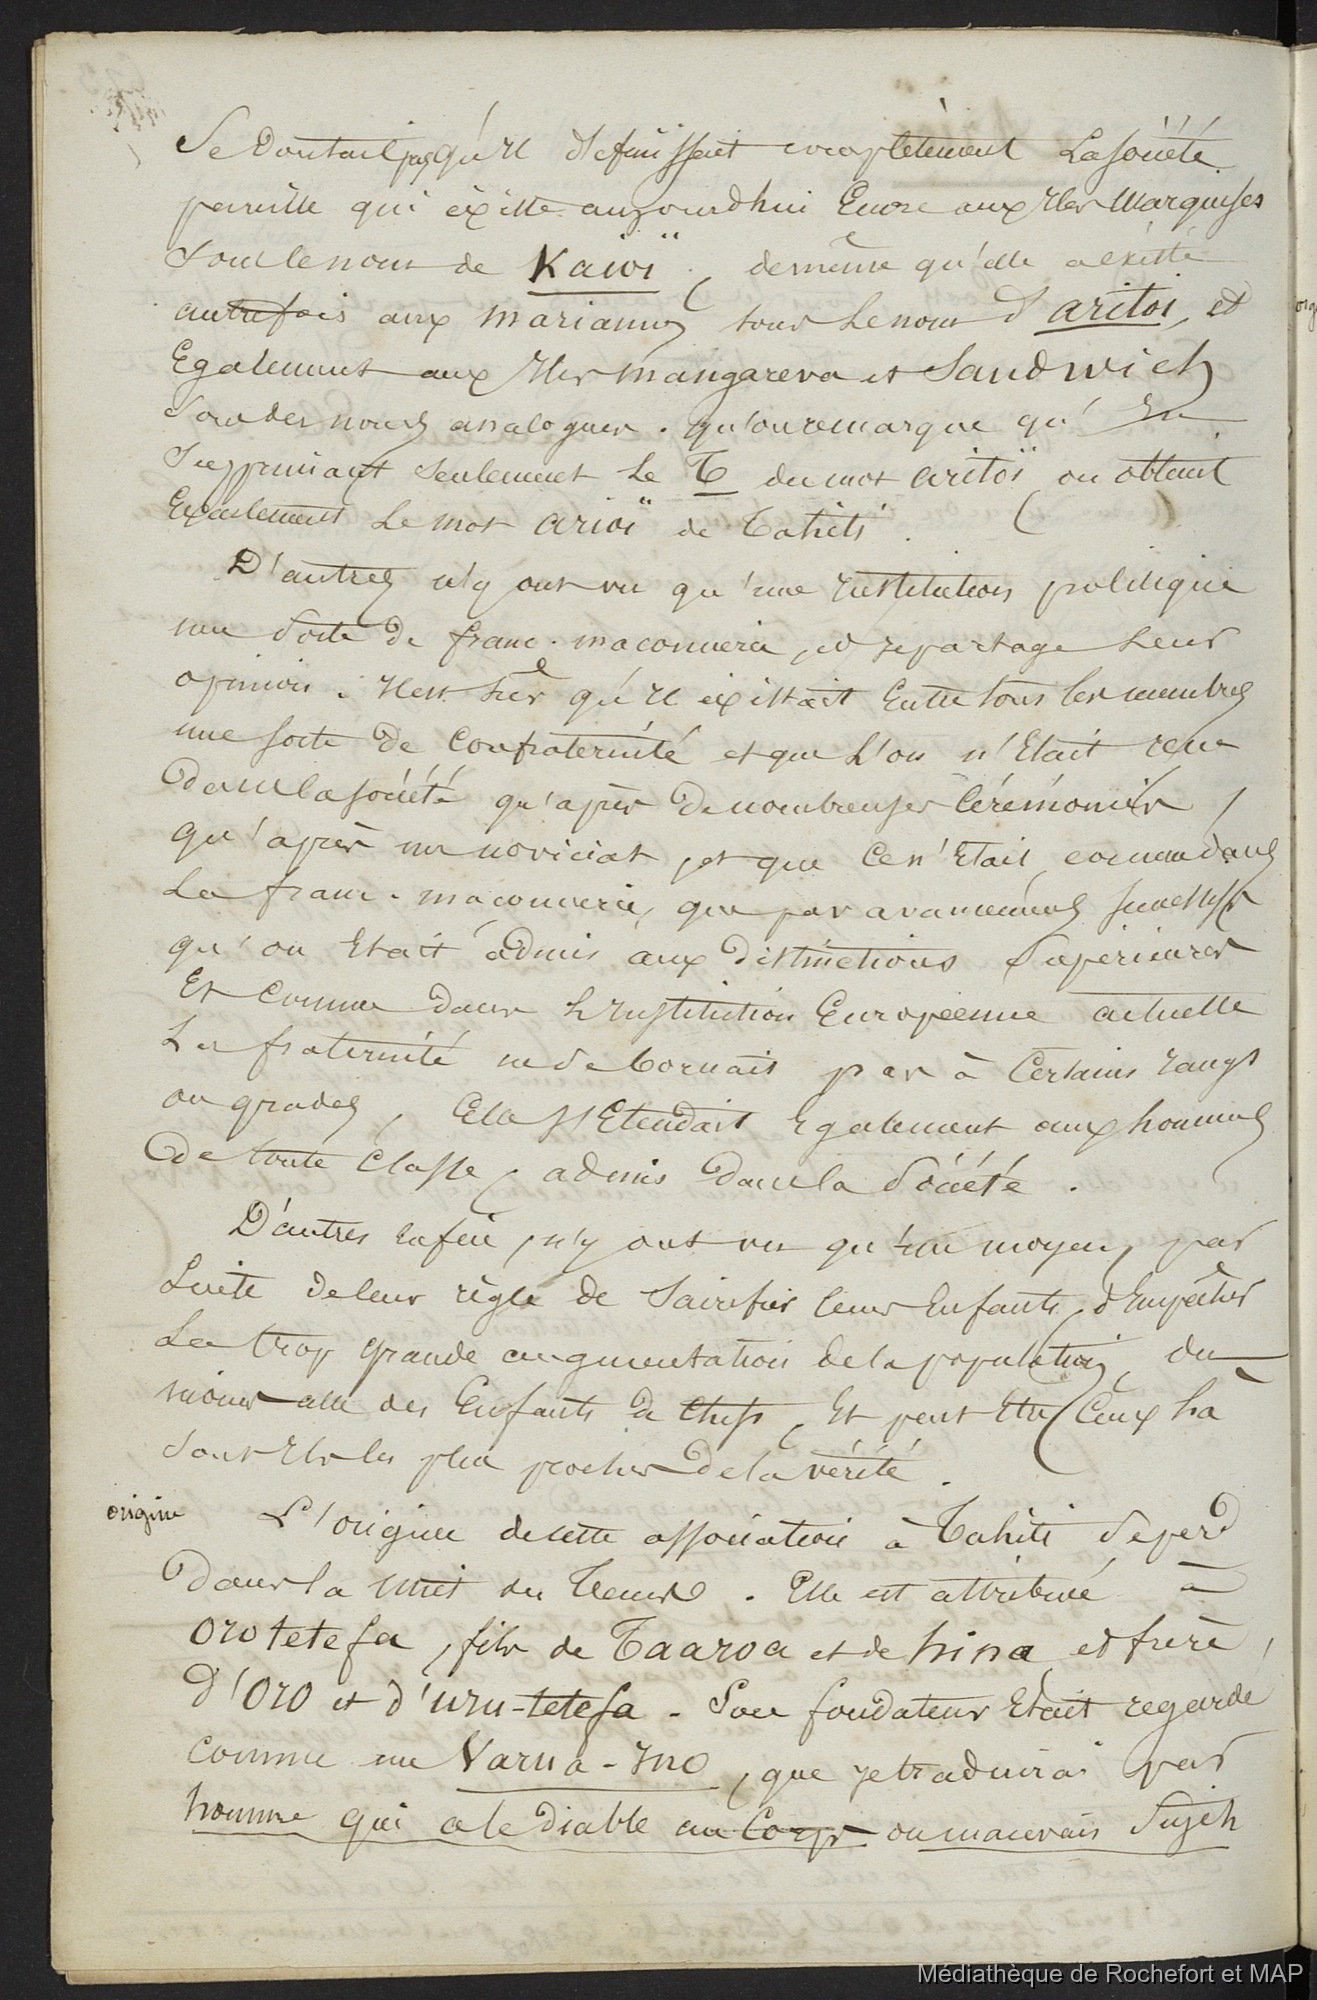 Se doutait pas qu'il définissait complètement La Société
pareille qui éxiste aujourdhui Encore aux Iles Marquises
Sous le nom de Kaioï, de même qu'elle a existé
autrefois aux mariannes sous le nom d'aritoï, et
Egalement aux Iles mangareva et Sandwich
Sous des noms analogues. qu'on remarque qu'En
Supprimant Seulement Le T du mot aritoï on obtient
Exactement Le mot arioï de Tahiti.
D'autres n'y ont vu qu'une Institution politique
une Sorte de franc-maconnerie, et je partage Leur
opinion. Il est Sûr qu'Il éxistait Entre tous les membres
une sorte de Confraternité et que L'on n'Etait reçu
Dans la société qu'après De nombreuses Cérémonies,
qu'après un noviciat, et que Ce n'Etait, comme dans
La franc-maconnerie, que par avancements successifs
qu'on Etait admis aux distinctions Supérieures
Et Comme dans L'Institution Européenne actuelle
La fraternité ne se bornait pas à Certains rangs
ou grades, Elle s'Etendait Egalement aux hommes
De toute Classe, admis Dans la Société.
D'autres Enfin, n'y ont vu qu'un moyen, par
Suite de leur règle de Sacrifier leurs Enfants, d'Empêcher
La trop Grande augmentation de la population, du
moins celle des Enfants de Chefs, Et peut Etre Ceux Là
Sont Ils les plus proches De la vérité.
origine L'origine de cette association à Tahiti Se perd
Dans la nuit du Tems. Elle est attribuée à
Orotetefa, fils de Taaroa et de hina, et frère
D'Oro et d'uru-tetefa. Son fondateur Etait regardé
Comme un Varua-Ino, que je traduirai par
homme qui a le Diable au Corps ou mauvais Sujet
Médiathèque de Rochefort et MAP